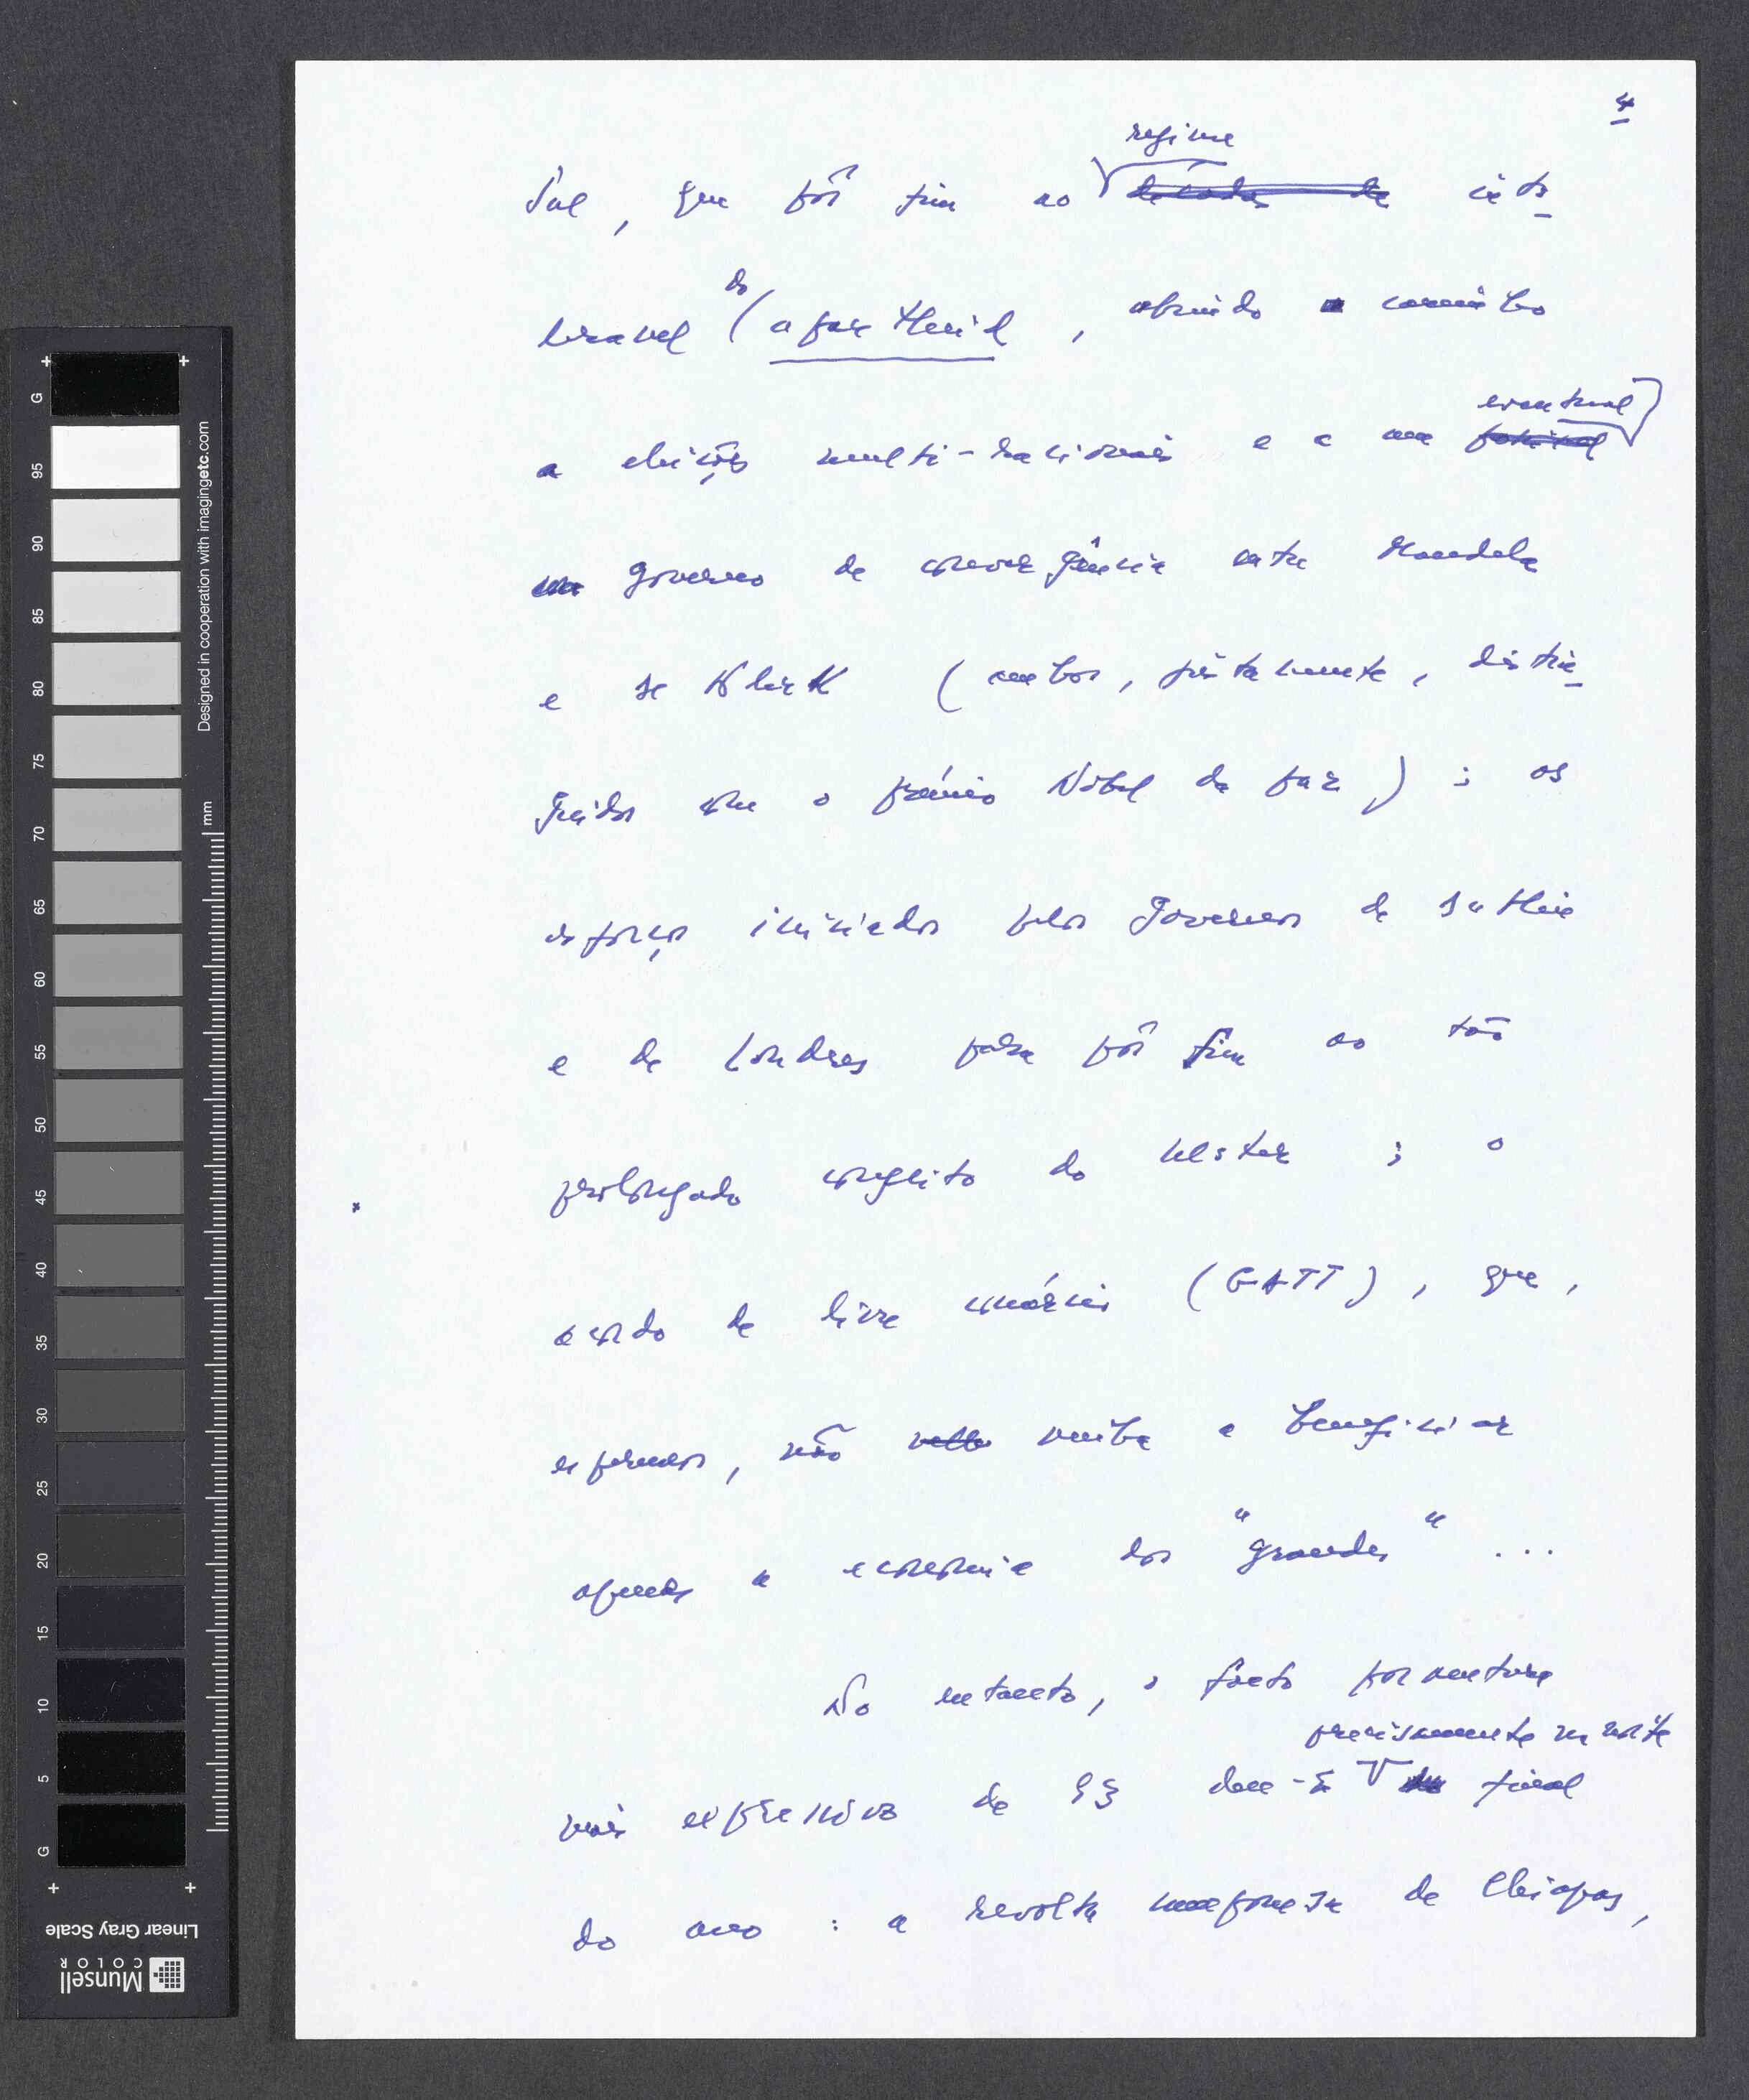 4
regime
Sul, que pôs fim ao décadas de into-
do
lerável (apartheid, abrindo caminho
eventual
a eleições multi-raciais e a um
um governo de convergência entre Mandela
e de Klerk (ambos, justamente, distin-
guidos com o prémio Nobel da paz); os
esforços iniciados pelos Governos de Dublin
e de Londres para pôr fim ao tão
prolongado conflito do Ulster; o
acordo de livre comércio (GATT), que,
esperemos, não venha a beneficiar
apenas a economia dos "grandes" ...
No entanto, o facto porventura
precisamente na noite
mais expressivo de 93 deu-se final
do ano: a revolta camponesa de Chiapas,
G 95 90 85 80 75 70 65 60 55 50 45 40 35 30 25 20 15 10 5 G
mm
Designed in cooperation with imagingetc.com
Linear Gray Scale
Munsell
COLOR